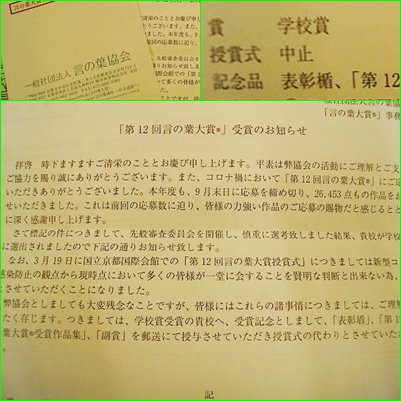 言の葉大賞
一般社団法人 言の葉協会
賞 学校賞
授賞式 中止
記念品 表彰楯、「第12
「第12回言の葉大賞®」受賞のお知らせ
拝啓 時下ますますご清栄のこととお慶び申し上げます。平素は弊協会の活動にご理解とご支
ご協力を賜り誠にありがとうございます。また、コロナ禍において「第12回言の葉大賞®」にご応
いただきありがとうございました。本年度も、9月末日に応募を締め切り、26,453点もの作品をお
せいただきました。これは前回の応募数に迫り、皆様の力強い作品のご応募の賜物だと感じるとと
に深く感謝申し上げます。
さて標記の件につきまして、先般審査委員会を開催し、慎重に選考致しました結果、貴校が学校
に選出されましたので下記の通りお知らせ致します。
なお、3月19日に国立京都国際会館での「第12回言の葉大賞授賞式」につきましては新型コ
感染防止の観点から現時点において多くの皆様が一堂に会することを賢明な判断と出来ない為、
とさせていただくことになりました。
弊協会としましても大変残念なことですが、皆様にはこれらの諸事情につきましては、ご理解
たく存じます。つきましては、学校賞受賞の貴校へ、受賞記念としまして、「表彰盾」、「第1
葉大賞®受賞作品集」、「副賞」を郵送にて授与させていただき授賞式の代わりとさせていた
。
記